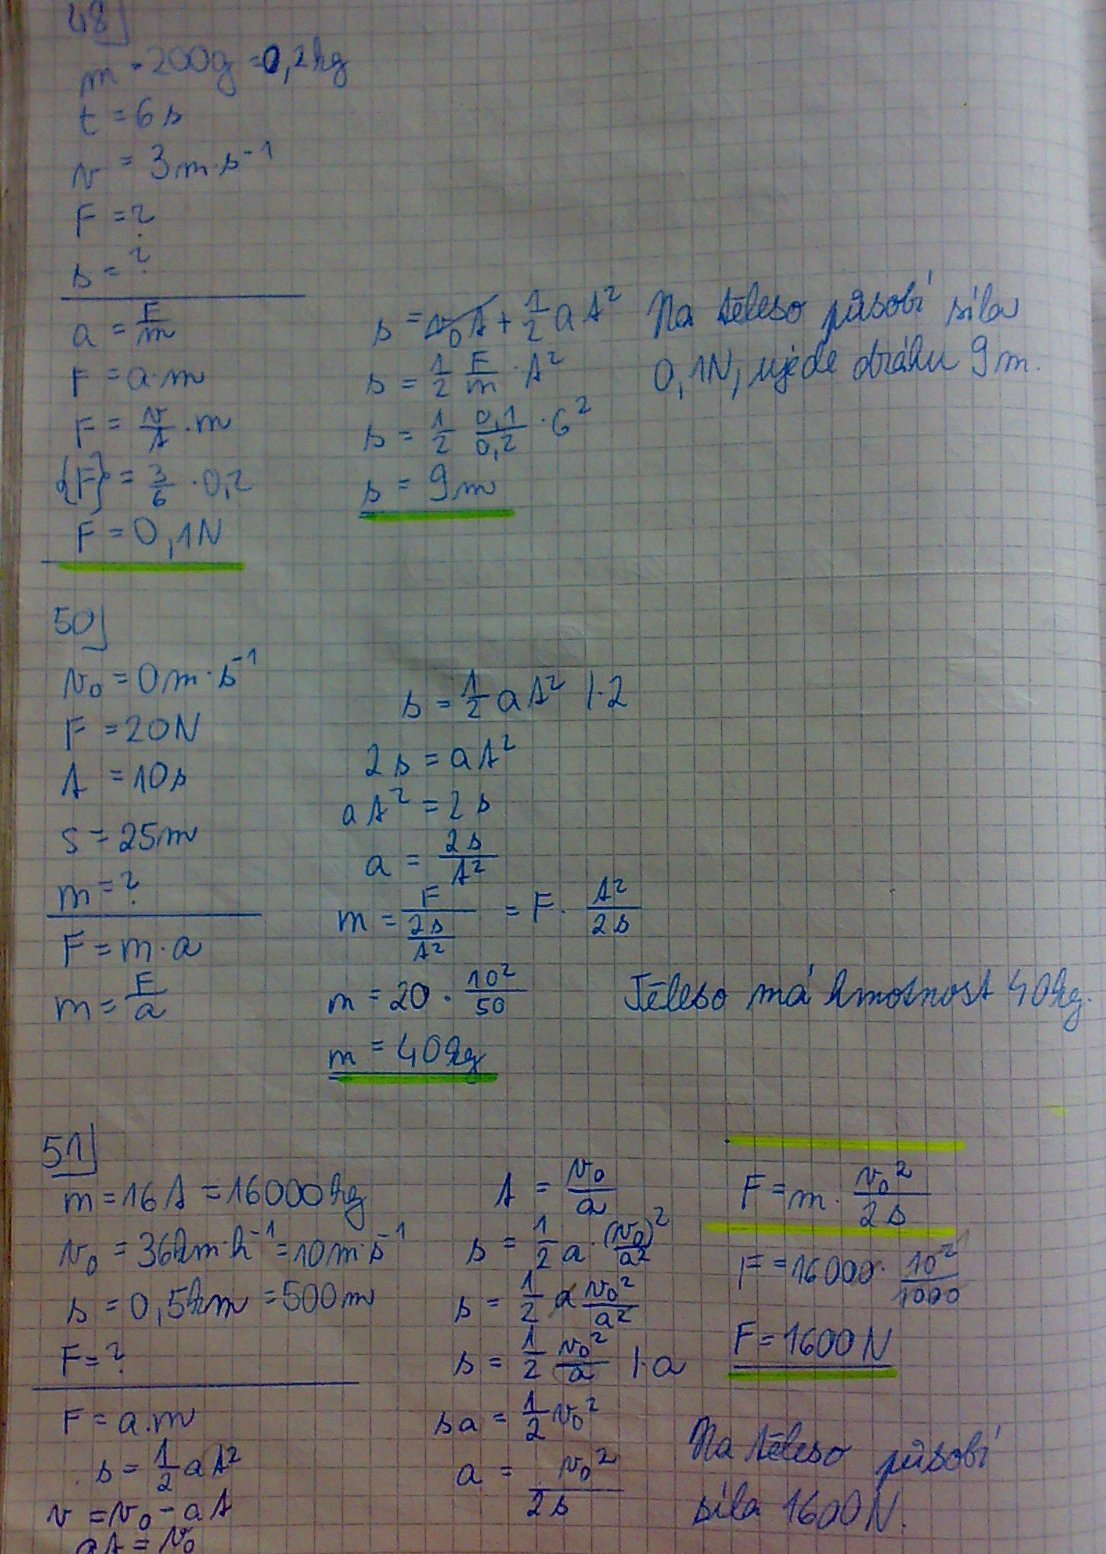 48)
m = 200g = 0,2kg
t = 6s
v = 3m·s⁻¹
F = ?
s = ?
a = F/m
F = a·m
F = v/t · m
{F} = 3/6 · 0,2
F = 0,1N
s = v₀t + 1/2 at²
s = 1/2 F/m · t²
s = 1/2 0,1/0,2 · 6²
s = 9m
Na těleso působí síla
0,1N, ujede dráhu 9m.
50)
v₀ = 0m·s⁻¹
F = 20N
t = 10s
s = 25m
m = ?
F = m·a
m = F/a
s = 1/2 at² |·2
2s = at²
at² = 2s
a = 2s/t²
m = F/(2s/t²) = F · t²/2s
m = 20 · 10²/50
m = 40kg
Těleso má hmotnost 40kg.
51)
m = 16t = 16000kg
v₀ = 36km·h⁻¹ = 10m·s⁻¹
s = 0,5km = 500m
F = ?
F = a.m
s = 1/2 at²
v = v₀ - at
at = v₀
t = v₀/a
s = 1/2 a · (v₀)²/a²
s = 1/2 a v₀²/a²
s = 1/2 v₀²/a |·a
sa = 1/2 v₀²
a = v₀²/2s
F = m · v₀²/2s
F = 16000 · 10²/1000
F = 1600N
Na těleso působí
síla 1600N.